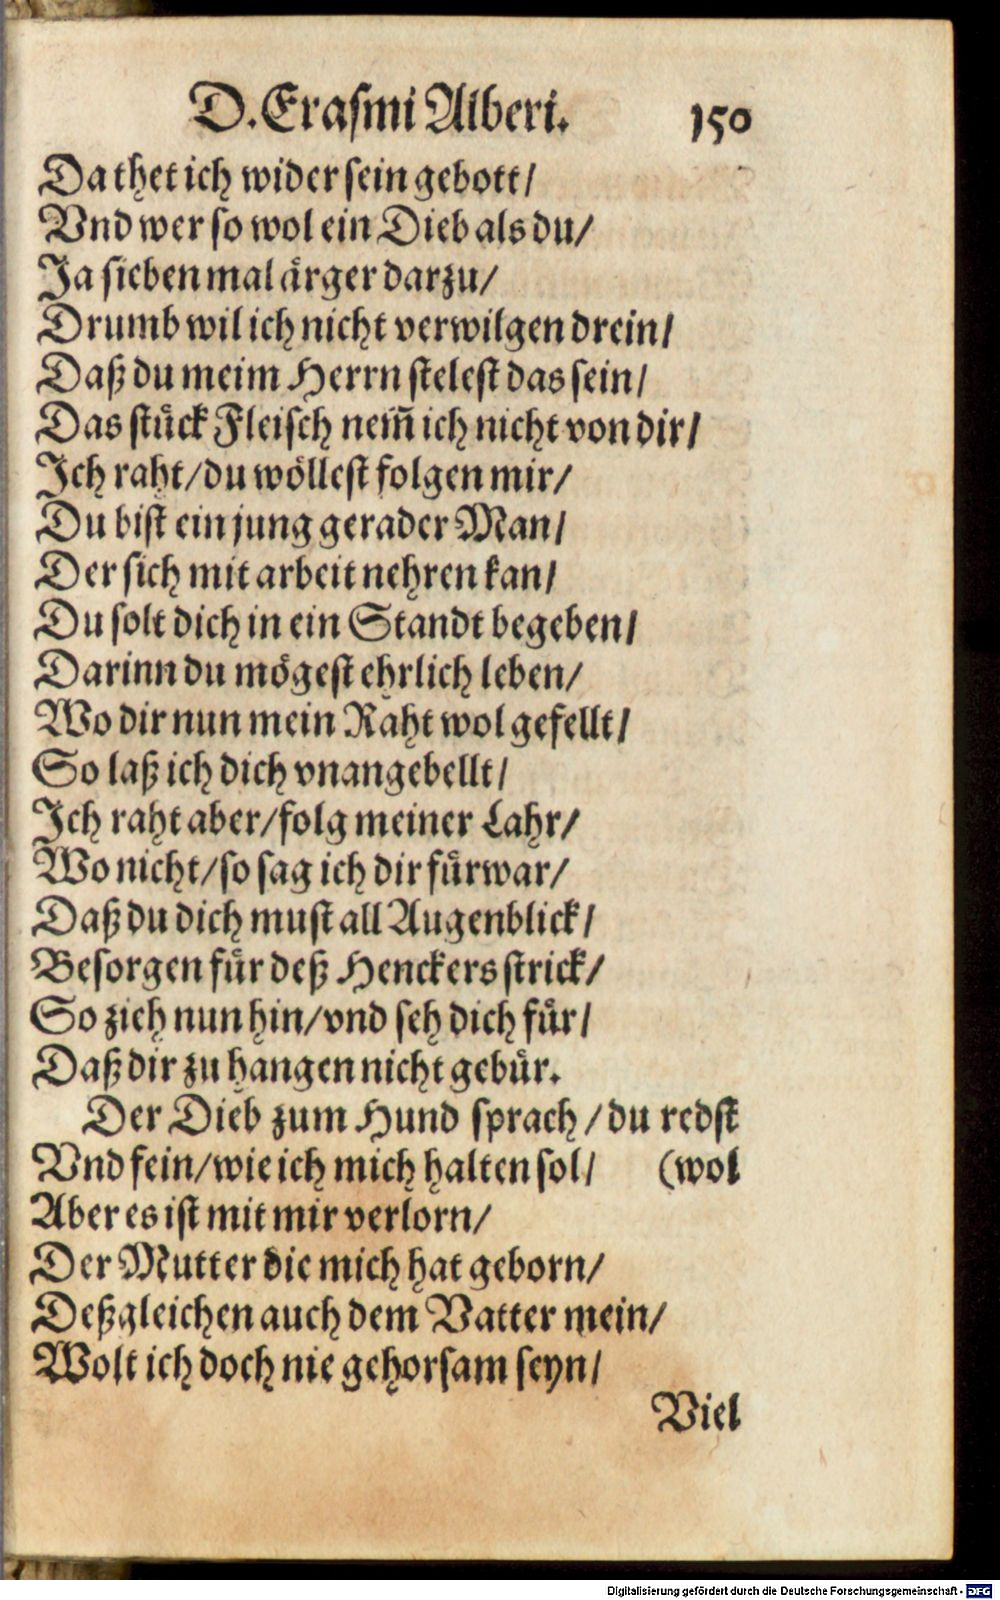 D. Erasmi Alberi. 150
Da thet ich wider sein gebott/
Vnd wer so wol ein Dieb als du/
Ja sieben mal ärger darzu/
Drumb wil ich nicht verwilgen drein/
Daß du meim Herrn stelest das sein/
Das stück Fleisch nem̃ ich nicht von dir/
Ich raht/du wöllest folgen mir/
Du bist ein jung gerader Man/
Der sich mit arbeit nehren kan/
Du solt dich in ein Standt begeben/
Darinn du mögest ehrlich leben/
Wo dir nun mein Raht wol gefellt/
So laß ich dich vnangebellt/
Ich raht aber/folg meiner Lahr/
Wo nicht/so sag ich dir fürwar/
Daß du dich must all Augenblick/
Besorgen für deß Henckers strick/
So zieh nun hin/vnd seh dich für/
Daß dir zu hangen nicht gebür.
Der Dieb zum Hund sprach/du redst
Vnd fein/wie ich mich halten sol/ (wol
Aber es ist mit mir verlorn/
Der Mutter die mich hat geborn/
Deßgleichen auch dem Vatter mein/
Wolt ich doch nie gehorsam seyn/
Viel
Digitalisierung gefördert durch die Deutsche Forschungsgemeinschaft - DFG